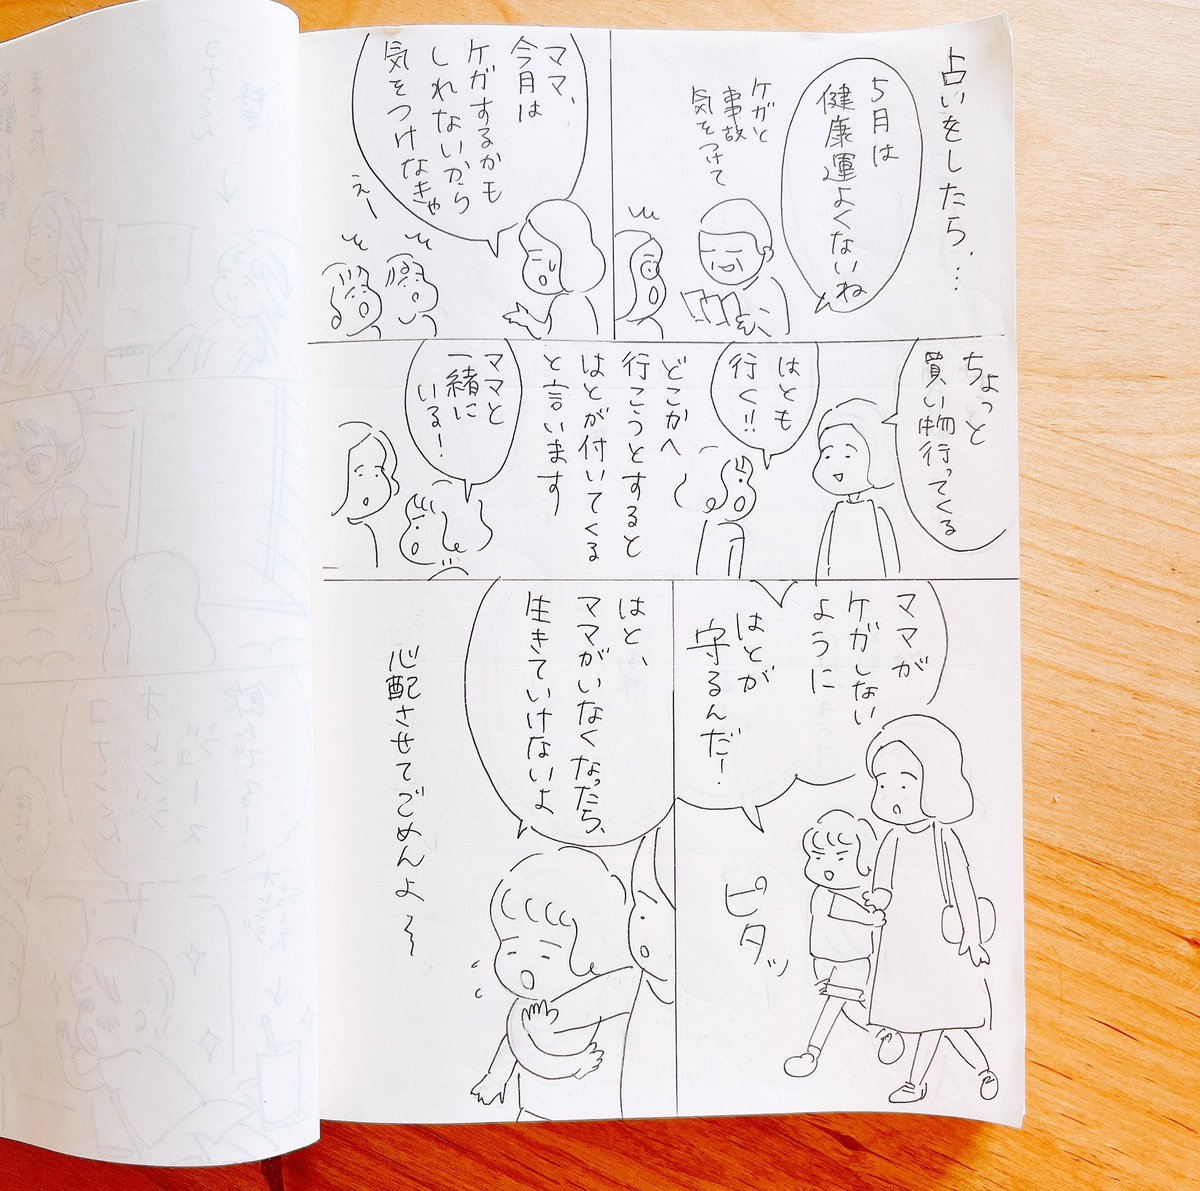 占いをしたら…
5月は
健康運よくないね
ケガと
事故
気をつけて
ママ、
今月は
ケガするかも
しれないから
気をつけなきゃ
えー
ちょっと
買い物行ってくる
はとも
行く!!
どこかへ
行こうとすると
はとが付いてくる
と言います
ママと
一緒に
いる!
ママが
ケガしない
ように
はとが
守るんだ!
ピタッ
はと、
ママがいなくなったら、
生きていけないよ
心配させてごめんよ〜